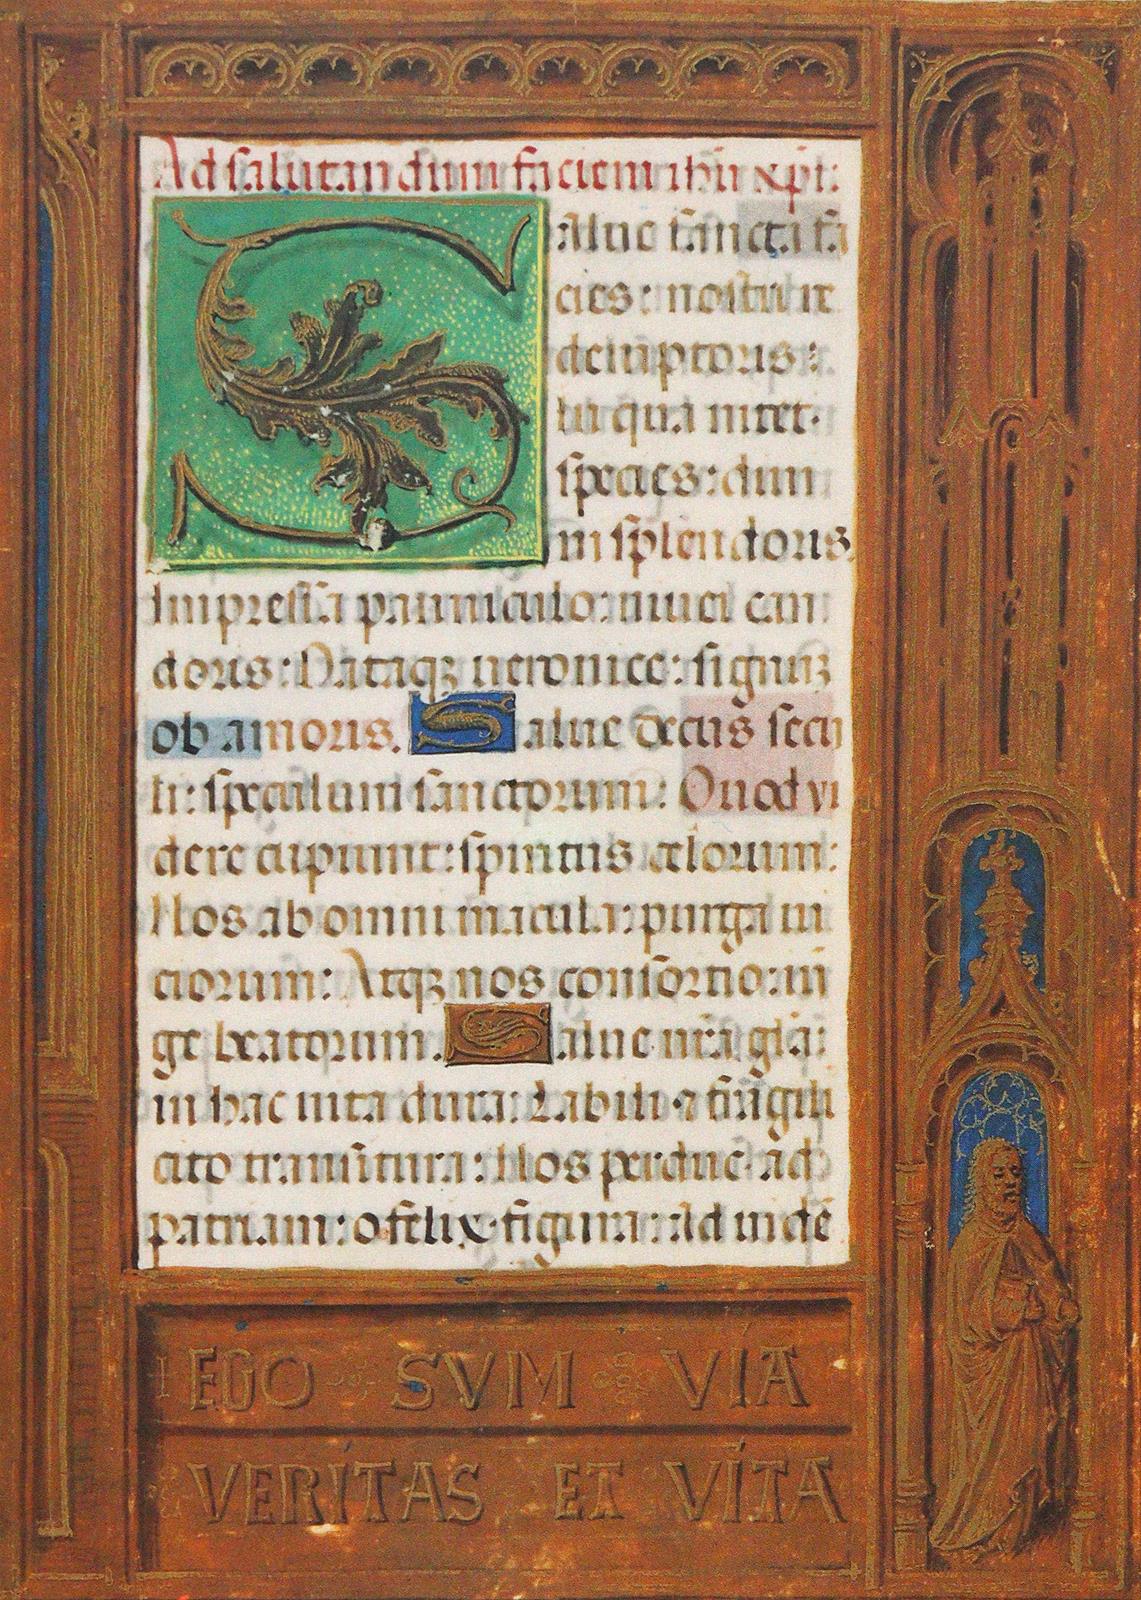 Ad salutandum faciem ihu xpi:
Salue sancta fa
cies: nostri re
demptoris:
In qua nitet.
species: diui
ni splendoris.
Impressa panniculo: niuei can
doris: Dataqꝫ ueronice: signuꝫ
ob amoris. Salue decus secu
li: speculum sanctorum: Quod vi
dere cupiunt: spiritus celorum:
Nos ab omni macula: purga ui
ciorum: Atqꝫ nos consortio: iu
ge beatorum. Salue nr̄a glīa:
in hac uita dura: Labili ⁊ fragili
cito transitura: Nos perduc ad
patriam: o felix figura: ad uidē
EGO SVM VIA
VERITAS ET VITA